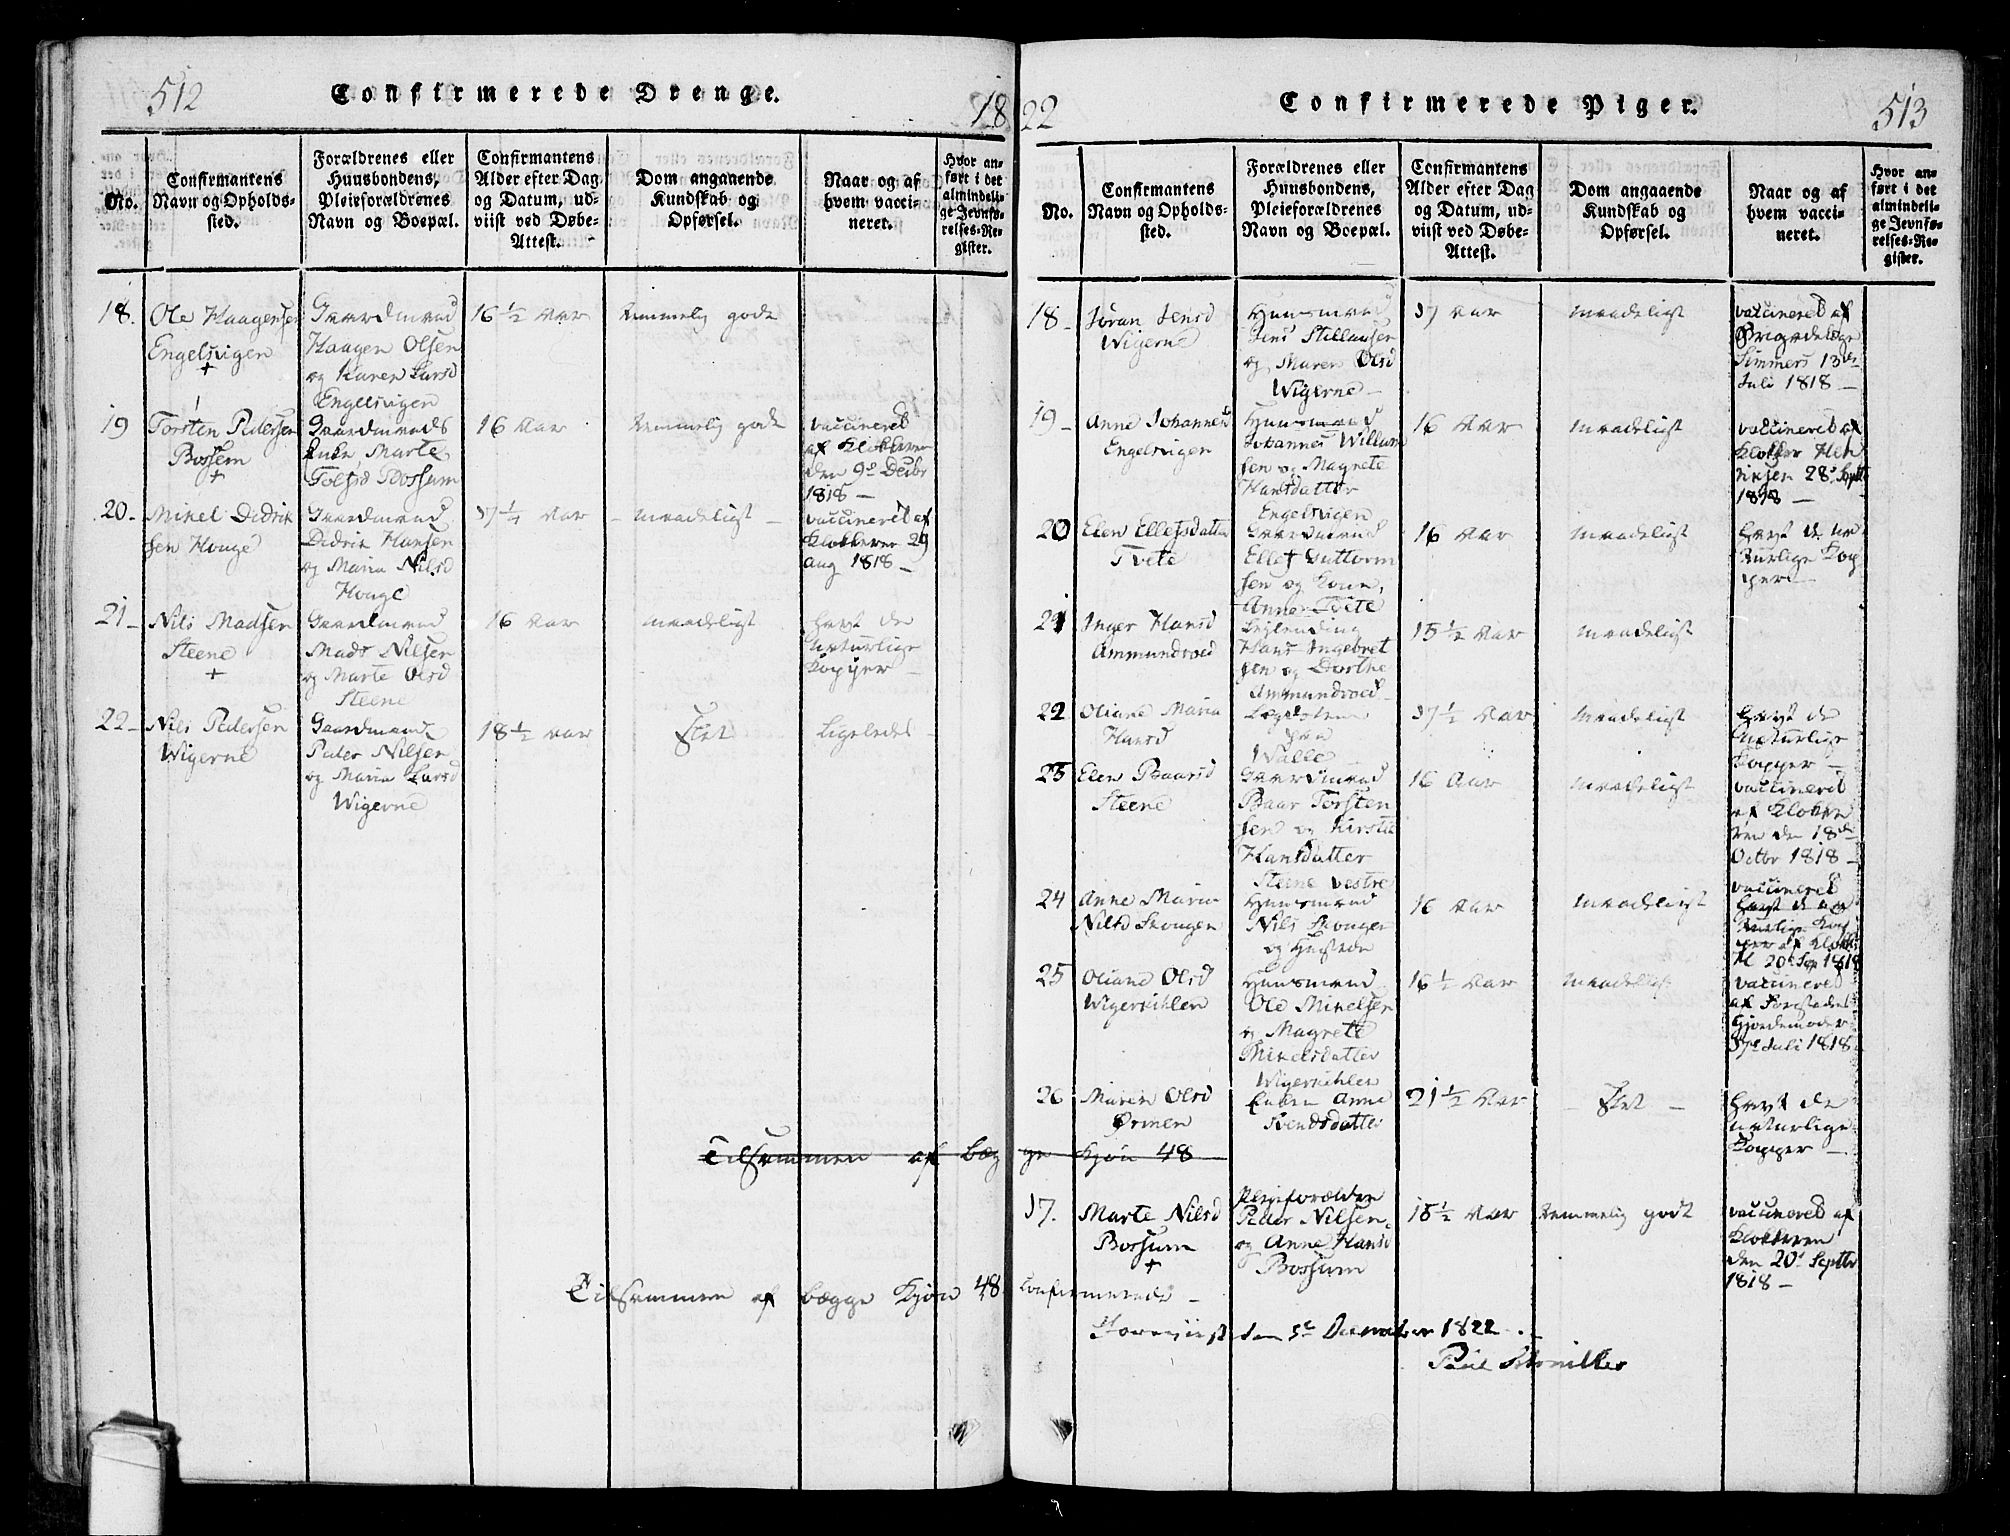 512
Confirmerede Drenge.
18
No.
Confirmantens
Navn og Opholds-
sted.
Forældrenes eller
Huusbondens,
Pleieforældrenes
Navn og Boepæl.
Confirmantens
Alder efter Dag
og Datum, ud-
viist ved Døbe-
Attest.
Dom angaaende
Kundskab og
Opførsel.
Naar og af
hvem vacci-
neret.
Hvor an-
ført i det
almindeli-
ge Jevnfø-
relses-Re-
gister.
18.
Ole Haagensen
Engelsvigen
+
Gaardmand
Haagen Olsen
og Karen Larsd
Engelsvigen
16 1/2 Aar
temmelig gode
19
Torsten Pedersen
Bossum
+
Gaardmands
Enke Marte
Bossum
16 Aar
temmelig gode
vaccineret
af Klokkeren
den 9de Decbr
1818 –
20 –
Mikel Didrik
sen Houge
Gaardmand
Didrik Hansen
og Maria Nilsd
Houge
17 1/4 Aar
– maadeligt –
vaccineret af
Klokkeren 29
Aug 1818 –
21 –
Nils Madsen
Steene
+
Gaardmand
Mads Nilsen
og Marte Olsd
Steene
16 Aar
maadeligt
havt de
naturlige
Kopper –
22 –
Nils Pedersen
Wigerne
Gaardmand
Peder Nilsen
og Maria Larsd
Wigerne
18 1/2 Aar
Slet
Ligeledes –
Tilsammen af bæg
Tilsammen af bægge Kjøn 48
22
Confirmerede Piger.
513
No.
Confirmantens
Navn og Opholds-
sted.
Forældrenes eller
Huusbondens,
Pleieforældrenes
Navn og Boepæl.
Confirmantens
Alder efter Dag
og Datum, ud-
viist ved Døbe-
Attest.
Dom angaaende
Kundskab og
Opførsel.
Naar og af
hvem vacci-
neret.
Hvor an-
ført i det
almindeli-
ge Jevnfø-
relses-Re-
gister.
18 –
Jøran Jensd
Wigerne
Huusmand
Jens Stillausen
og Maren Olsd
Wigerne –
17 Aar
maadeligt
vaccineret af
Simmers 13de
Juli 1818 –
19 –
Anne Johannesd
Engelsvigen
Huusmand
Johannes Willum
sen og Magrete
Hansdatter
Engelsvigen
16 Aar
maadeligt
vaccineret af
Klokker Hen
riksen 28de Septbr
1818 –
20
Elen Ellefsdatter
Tvete
Gaardmand
Ellef Guttorm
sen og Kone,
Anne Tvete
16 Aar
maadeligt
havt de na
turlige Kop
per –
21
Inger Hansd
Ammundroed
Leilending
Hans Ingebret
sen og Dorthe
Ammundroed –
15 1/2 Aar
maadeligt
22
Oliane Maria
Hansd
Walle
17 1/2 Aar
maadeligt
havt de
naturlige
Kopper –
23
Elen Baarsd
Steene
Gaardmand
Baar Torsten
sen og Kirstie
Hansdatter
Steene vestre
16 Aar
maadeligt
vaccineret
af Klokke
ren den 18de
Octbr 1818 –
24
Anne Maria
Nilsd Skougen
Huusmand
Nils Skougen
og Hustrue
16 Aar
maadeligt
vaccineret
havt de na
turlige Kop
per af Klokk:
H 20de Sep 1818
25
Oliane Olsd
Wigerkihlen
Huusmand
Ole Mikelsen
og Magrete
Mikelsdatter
Wigerkihlen
16 1/2 Aar
maadeligt
vaccineret
af
Gjordemoder
17de Juli 1818 –
26
Maren Olsd
Ørmen
Enken Anne
Svendsdatter
21 1/2 Aar
– Slet –
havt de
naturlige
Kopper –
ge Kjøn 48
17.
Marte Nilsd
Bossum
+
Pleieforældre
Peder Nilsen
og Anne Hansd
Bossum
18 1/2 Aar
temmelig godt
vaccineret af
Klokkeren
den 20de Septbr
1818 –
Confirmerede –
den 5te December 1822